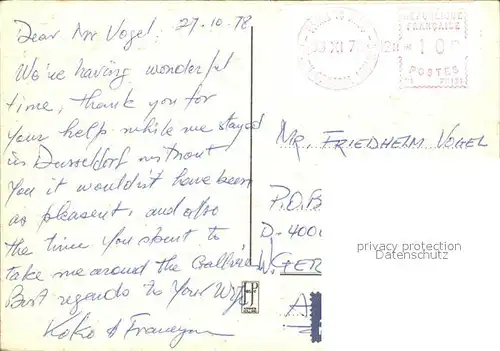 Dear Mr Vogel. 27-10-78
We're having wonderful
time, thank you for
your help while we stayed
in Dusseldorf without
you it wouldn't have been
as pleasent, and also
the time you spent to
take me around the
Best regards to Your
Koko &
RÉPUBLIQUE
FRANÇAISE
POSTES
MR. FRIEDHELM VOGEL
P.O.B
D-400
W. GER
privacy protection
Datenschutz